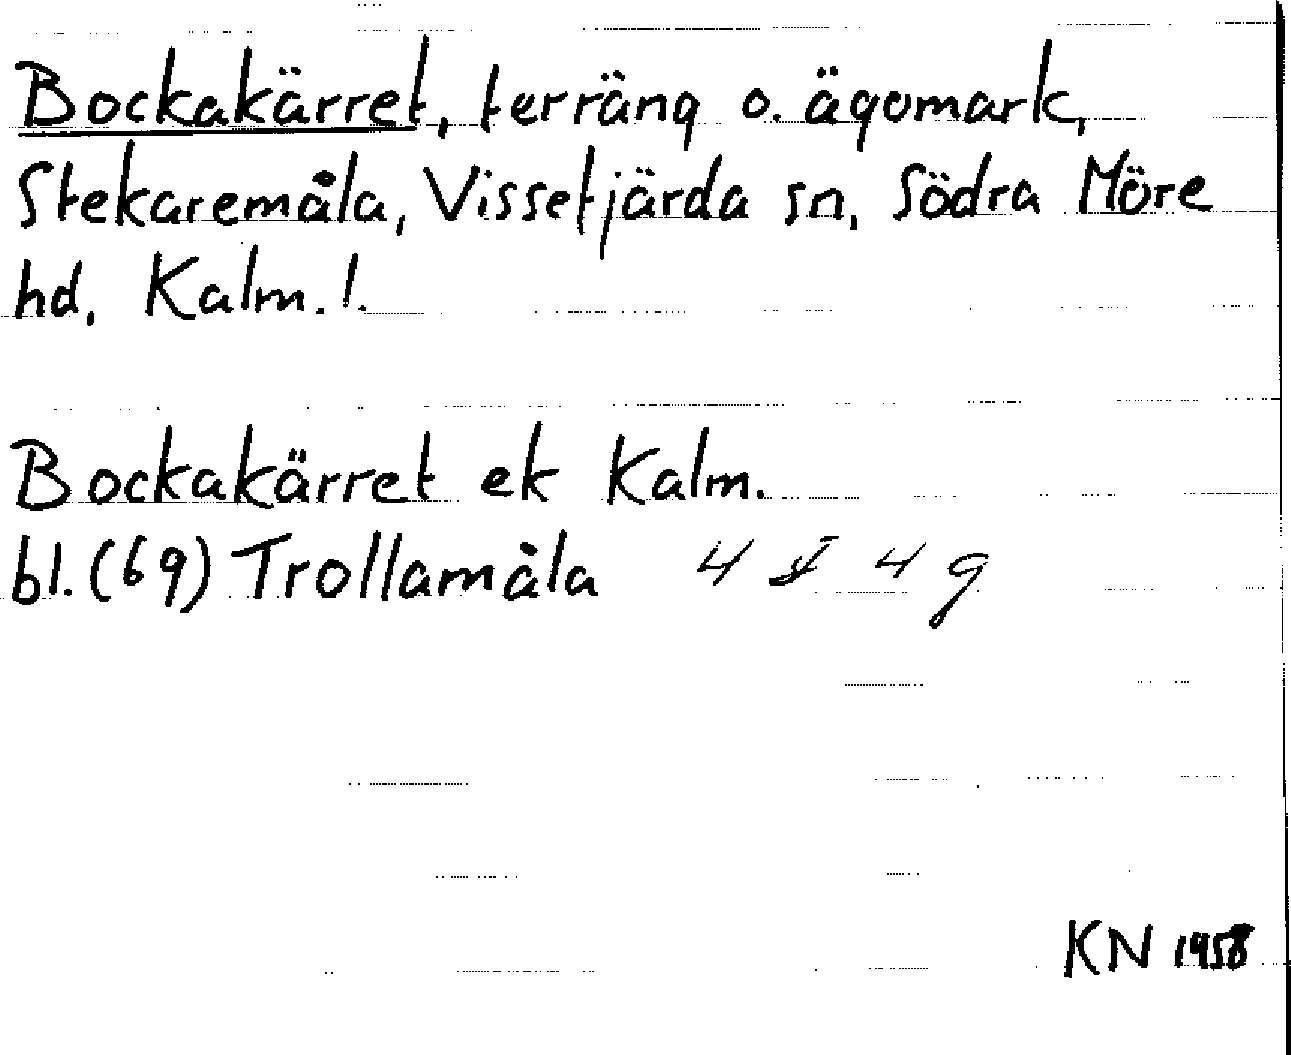 Bockakärret, terräng o. ägomark,
Stekaremåla, Vissefjärda sn, Södra Möre
hd, Kalm. l.
Bockakärret ek Kalm.
bl. (69) Trollamåla 4 F 4 g
KN 1958